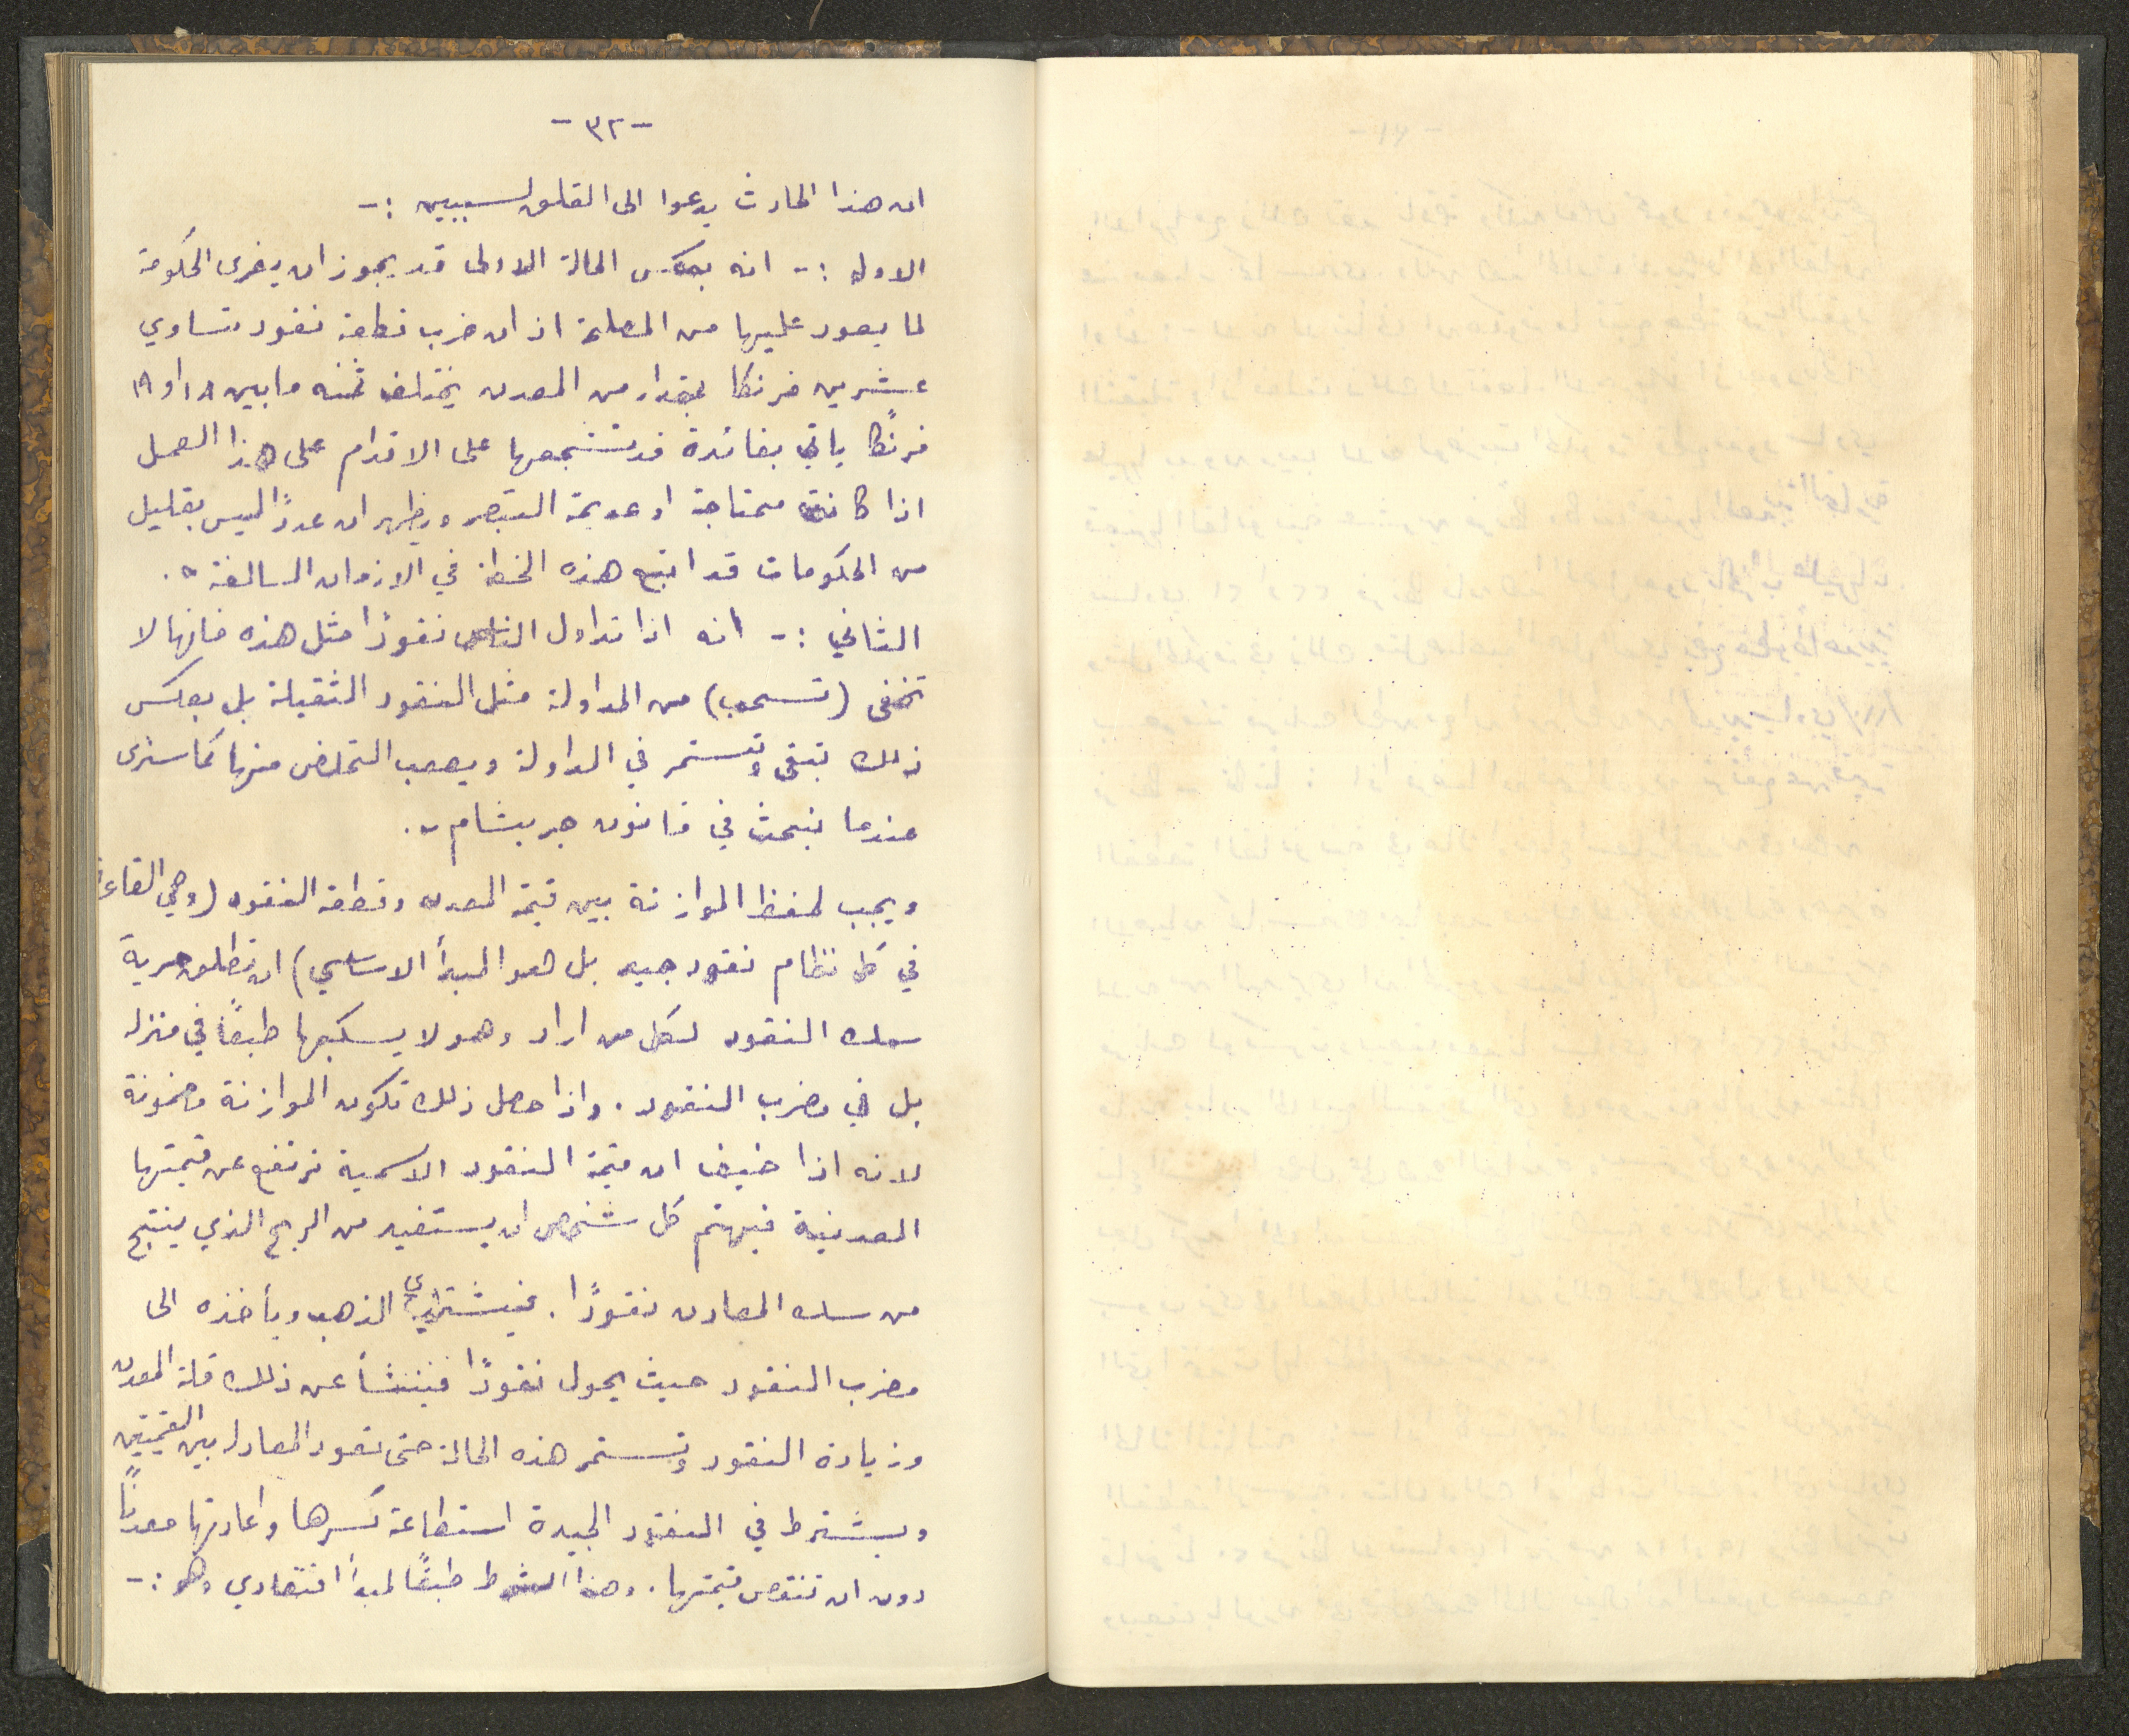 -٣٢-
ان هذا الحادث يدعوا الى القلق لسببين :-
الاول :- انه بعكس الحالة الاولى قد يجوز ان يغرى الحكومة
لما يعود عليها من المصلحة اذ ان ضرب قطعة نقود تساوي
عشرين فرنكا بمقدار من المعدن يختلف ثمنه ما بين ١٨ او ١٩
فرنكًا ياتي بفائدة قد تشجعها على الاقدام على هذا العمل
اذا كانت محتاجة او عديمة التبصر ويظهر ان عددًا ليس بقليل
من الحكومات قد اتبع هذه الخطة في الازمان السالفة -.
الثاني :- انه اذا تداول الناس نقودًا مثل هذه فانها لا
تختفى (تسحب) من المداولة مثل النقود الثقيلة بل بعكس
ذلك تبقى وتستمر في المداولة ويصعب التخلص منها كما سنرى
عندما نبحث في قانون جريشام -.
ويجب لحفظ الموازنة بين قيمة المعدن وقطعة النقود (وهي القاعدة
في كل نظام نقود جيد بل هو المبدأ الاساسي) ان تطلق حرية
سك النقود لكل من اراد وهو لا يسكها طبعًا في منزله
بل في مضرب النقود . واذا حصل ذلك تكون الموازنة مضمونة
لانه اذا خيف ان قيمة النقود الاسمية ترتفع عن قيمتها
المعدنية فيهتم كل شخص ان يستفيد من الربح الذي ينتج
من سك المعادن نقودًا . فيشتري الذهب ويأخذه الى
مضرب النقود حيث يحول نقودًا فينشأ عن ذلك قلة المعدن
وزيادة النقود وتستمر هذه الحالة حتى تعود المعادلة بين القيمتين
ويشترط في النقود الجيدة استطاعة كسرها واعادتها معدنًا
دون ان تنقص قيمتها . وهذا الشرط طبقًا لمبدأ اقتصادي وهو :-